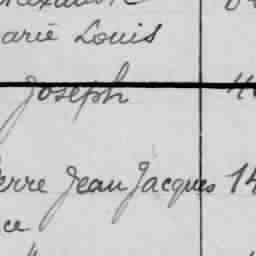 arie Louis
Joseph
erre Jean Jacques 14
ce